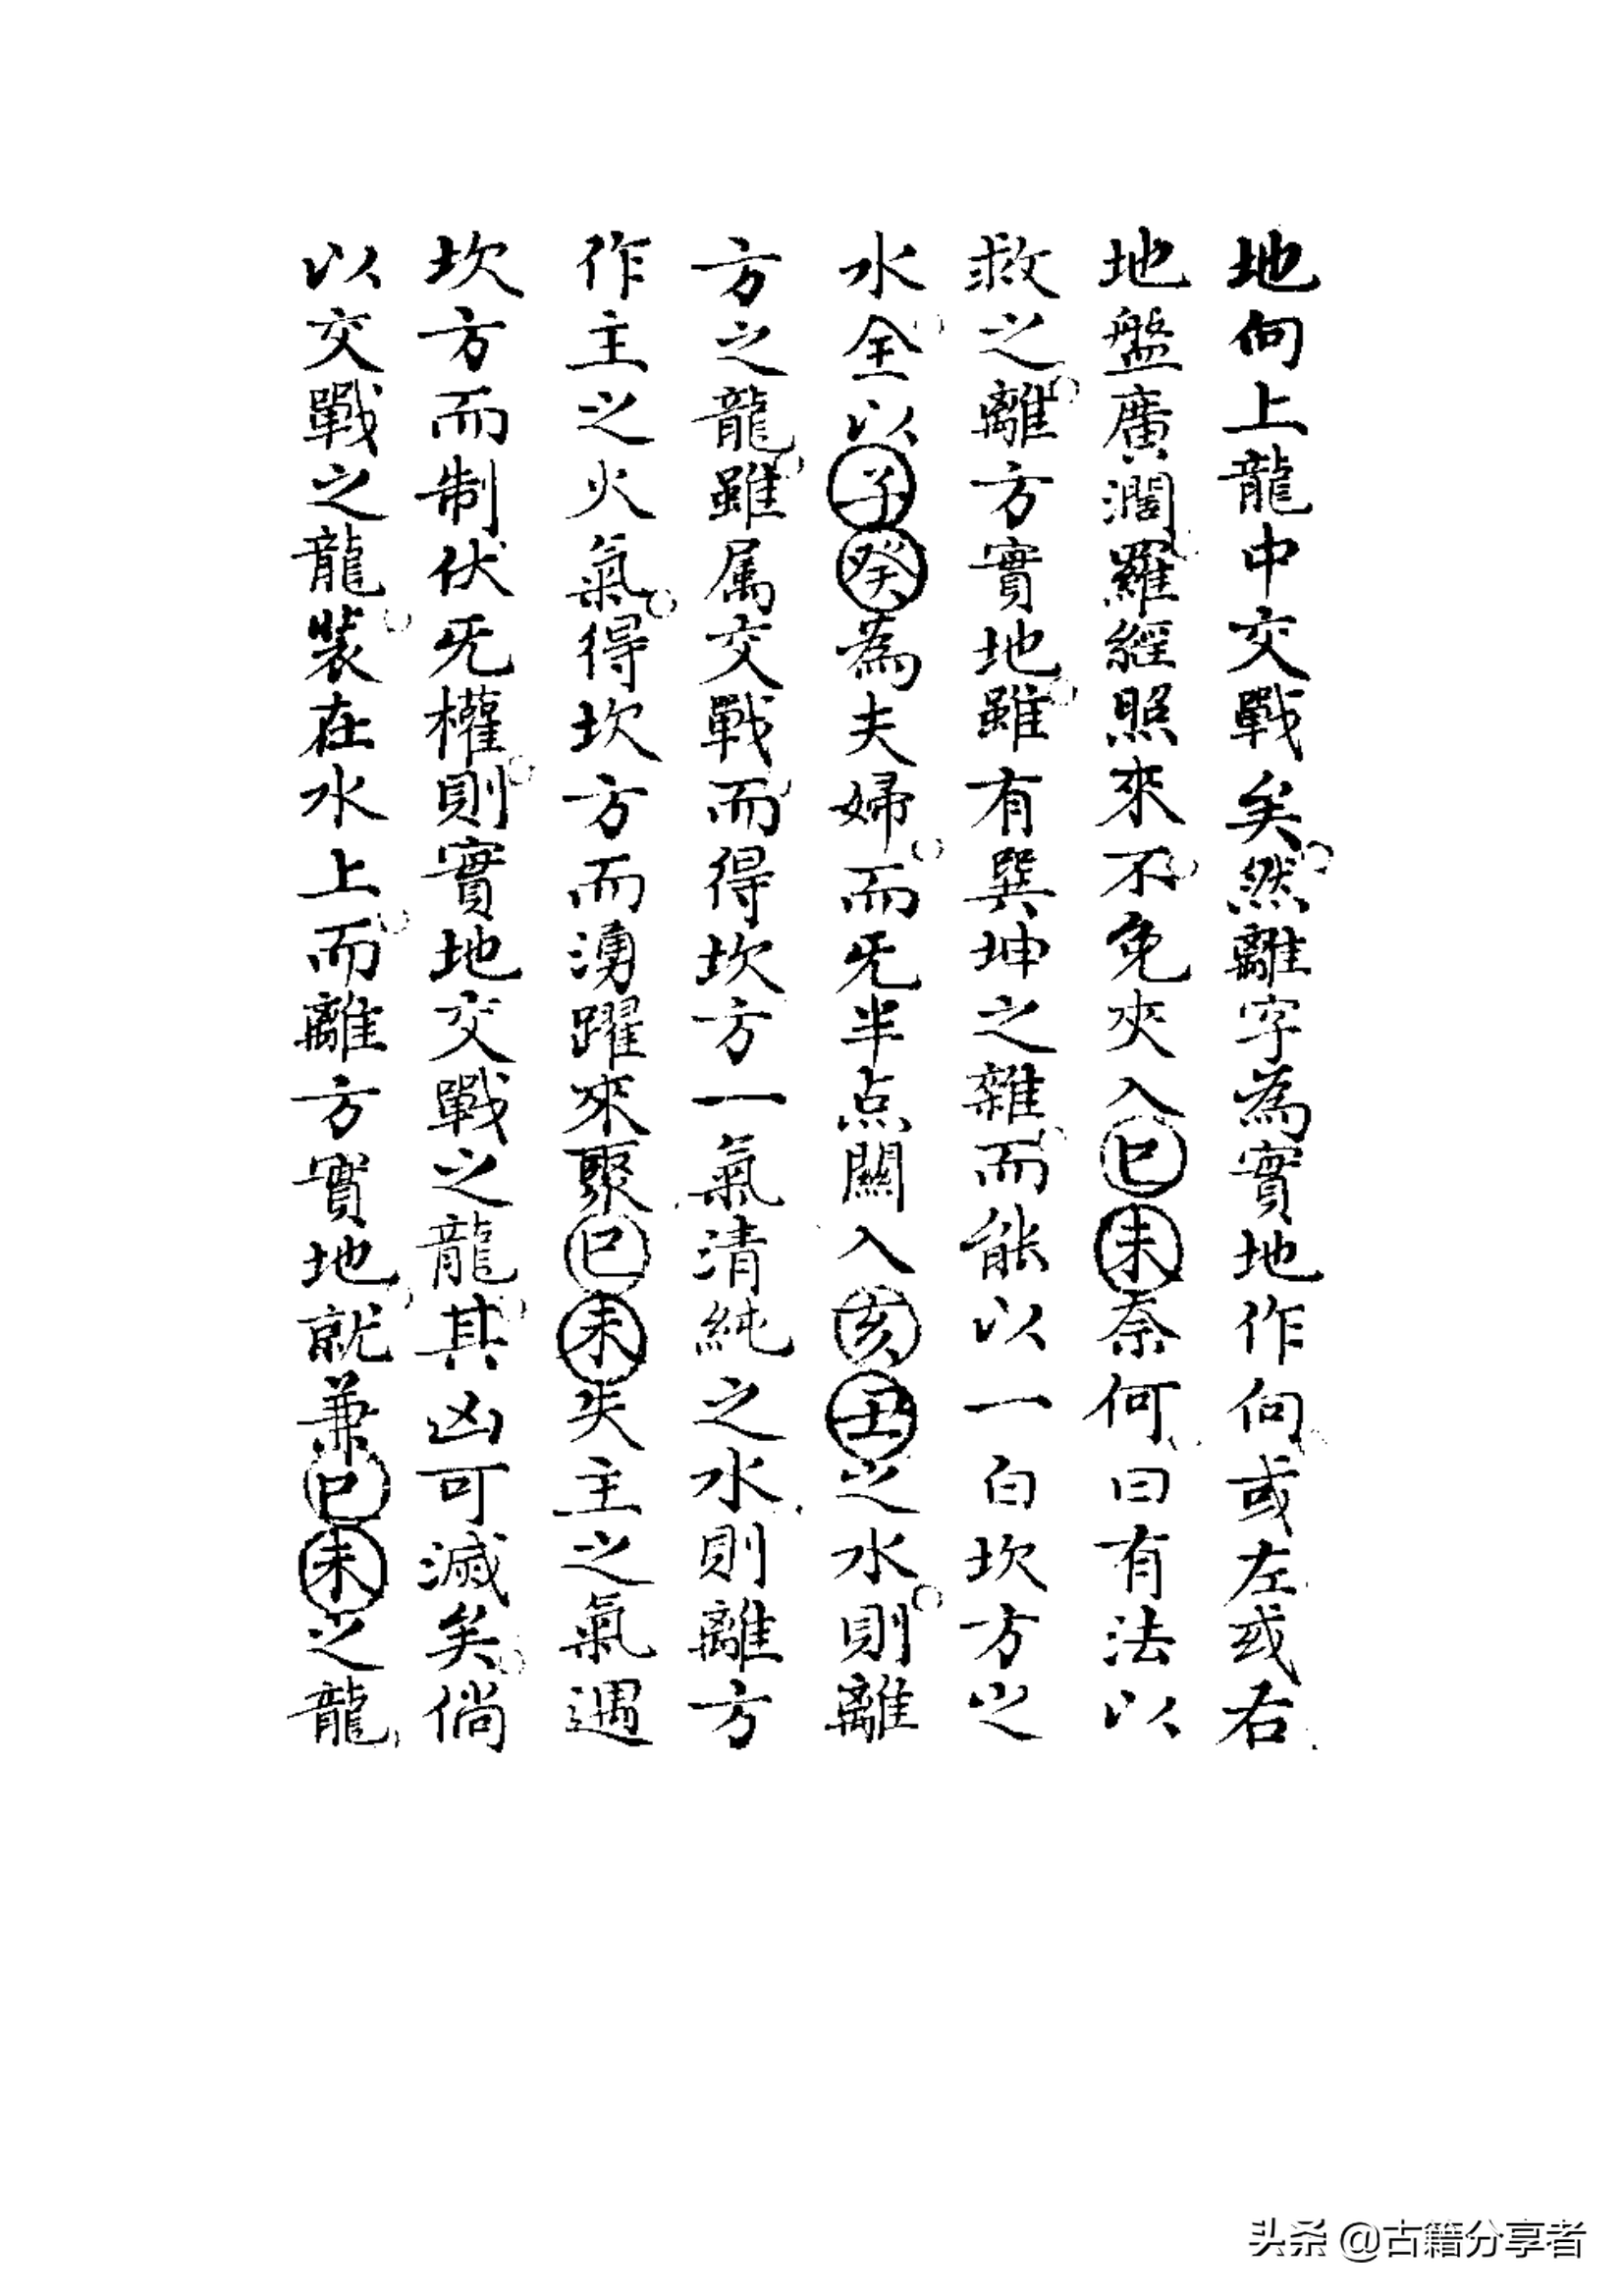 地向上龍中交戰矣然離字為實地作向或左或右
地盤廣濶羅經照來不免夾入巳未奈何曰有法以
救之離方實地雖有巽坤之雜而能以一白坎方之
水全以子癸為夫婦而旡半点闗入亥丑之水則離
方之龍雖属交戰而得坎方一氣清純之水則離方
作主之火氣得坎方而湧躍來聚巳未失主之氣遇
坎方而制伏旡權則實地交戰之龍其凶可滅矣倘
以交戰之龍裝在水上而離方實地就兼巳未之龍
头条 @古籍分享者